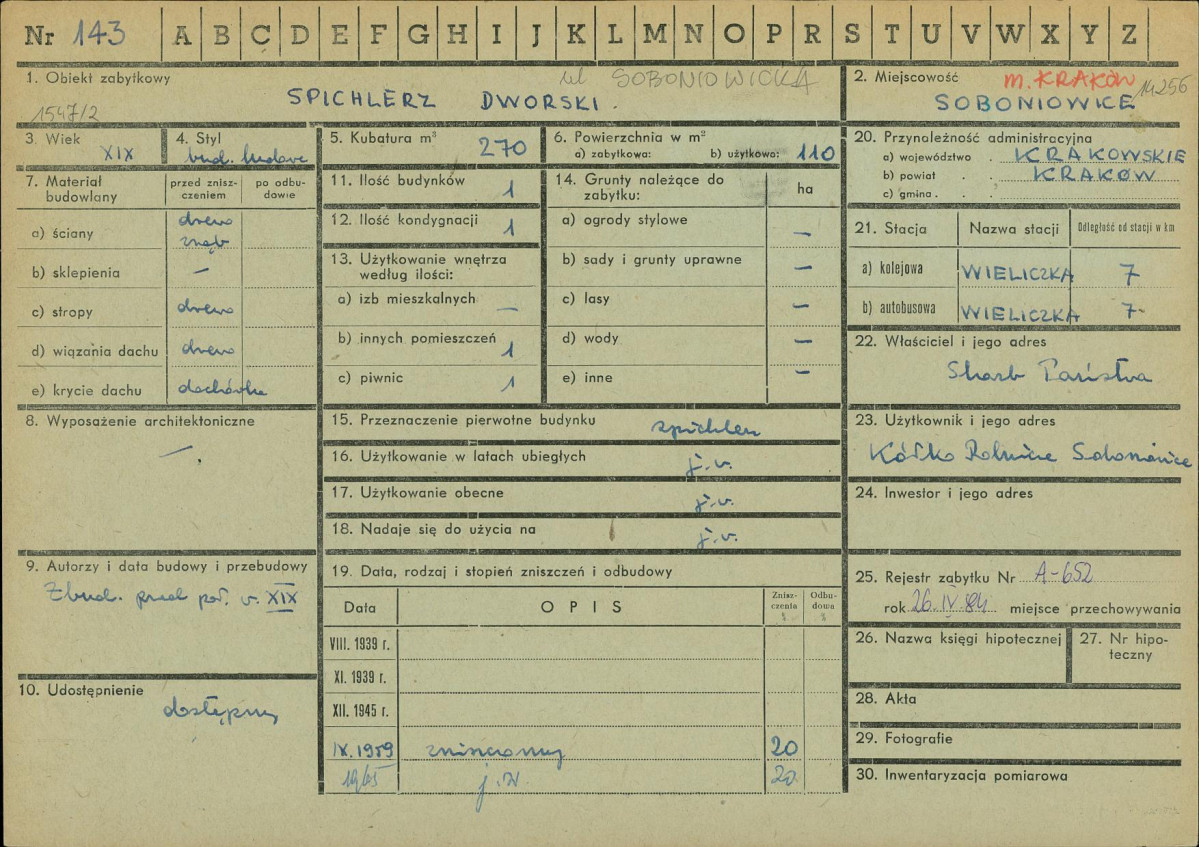 Nr 143 A B C D E F G H I J K L M N O P R S T U V W X Y Z
1. Obiekt zabytkowy
ul SOBONIOWICKA
SPICHLERZ DWORSKI.
1547/2
2. Miejscowość
m. KRAKÓW 14256
SOBONIOWICE
3. Wiek
XIX
4. Styl
bud. ludowe
5. Kubatura m³
270
6. Powierzchnia w m²
a) zabytkowa: b) użytkowa: 110
7. Materiał budowlany
przed zniszczeniem
po odbudowie
a) ściany drewno zrąb
b) sklepienia –
c) stropy drewno
d) wiązania dachu drewno
e) krycie dachu dachówka
8. Wyposażenie architektoniczne
–.
9. Autorzy i data budowy i przebudowy
Zbud. przed poł. w. XIX
10. Udostępnienie
dostępny
11. Ilość budynków 1
12. Ilość kondygnacji 1
13. Użytkowanie wnętrza
według ilości:
a) izb mieszkalnych –
b) innych pomieszczeń 1
c) piwnic 1
14. Grunty należące do
zabytku:
ha
a) ogrody stylowe –
b) sady i grunty uprawne –
c) lasy –
d) wody –
e) inne –
15. Przeznaczenie pierwotne budynku spichlerz
16. Użytkowanie w latach ubiegłych j.w.
17. Użytkowanie obecne j.w.
18. Nadaje się do użycia na j.w.
19. Data, rodzaj i stopień zniszczeń i odbudowy
Data OPIS Zniszczenia % Odbudowa %
VIII. 1939 r.
XI. 1939 r.
XII. 1945 r.
IX. 1959 zniszczony 20
1965 j.w. 20
20. Przynależność administracyjna
a) województwo . KRAKOWSKIE
b) powiat . . KRAKÓW
c) gmina . .
21. Stacja Nazwa stacji Odległość od stacji w km
a) kolejowa WIELICZKA 7
b) autobusowa WIELICZKA 7-
22. Właściciel i jego adres
Skarb Państwa
23. Użytkownik i jego adres
Kółko Rolnicze Soboniowice
24. Inwestor i jego adres
25. Rejestr zabytku Nr A-652
rok 26.IV.84 miejsce przechowywania
26. Nazwa księgi hipotecznej
27. Nr hipoteczny
28. Akta
29. Fotografie
30. Inwentaryzacja pomiarowa